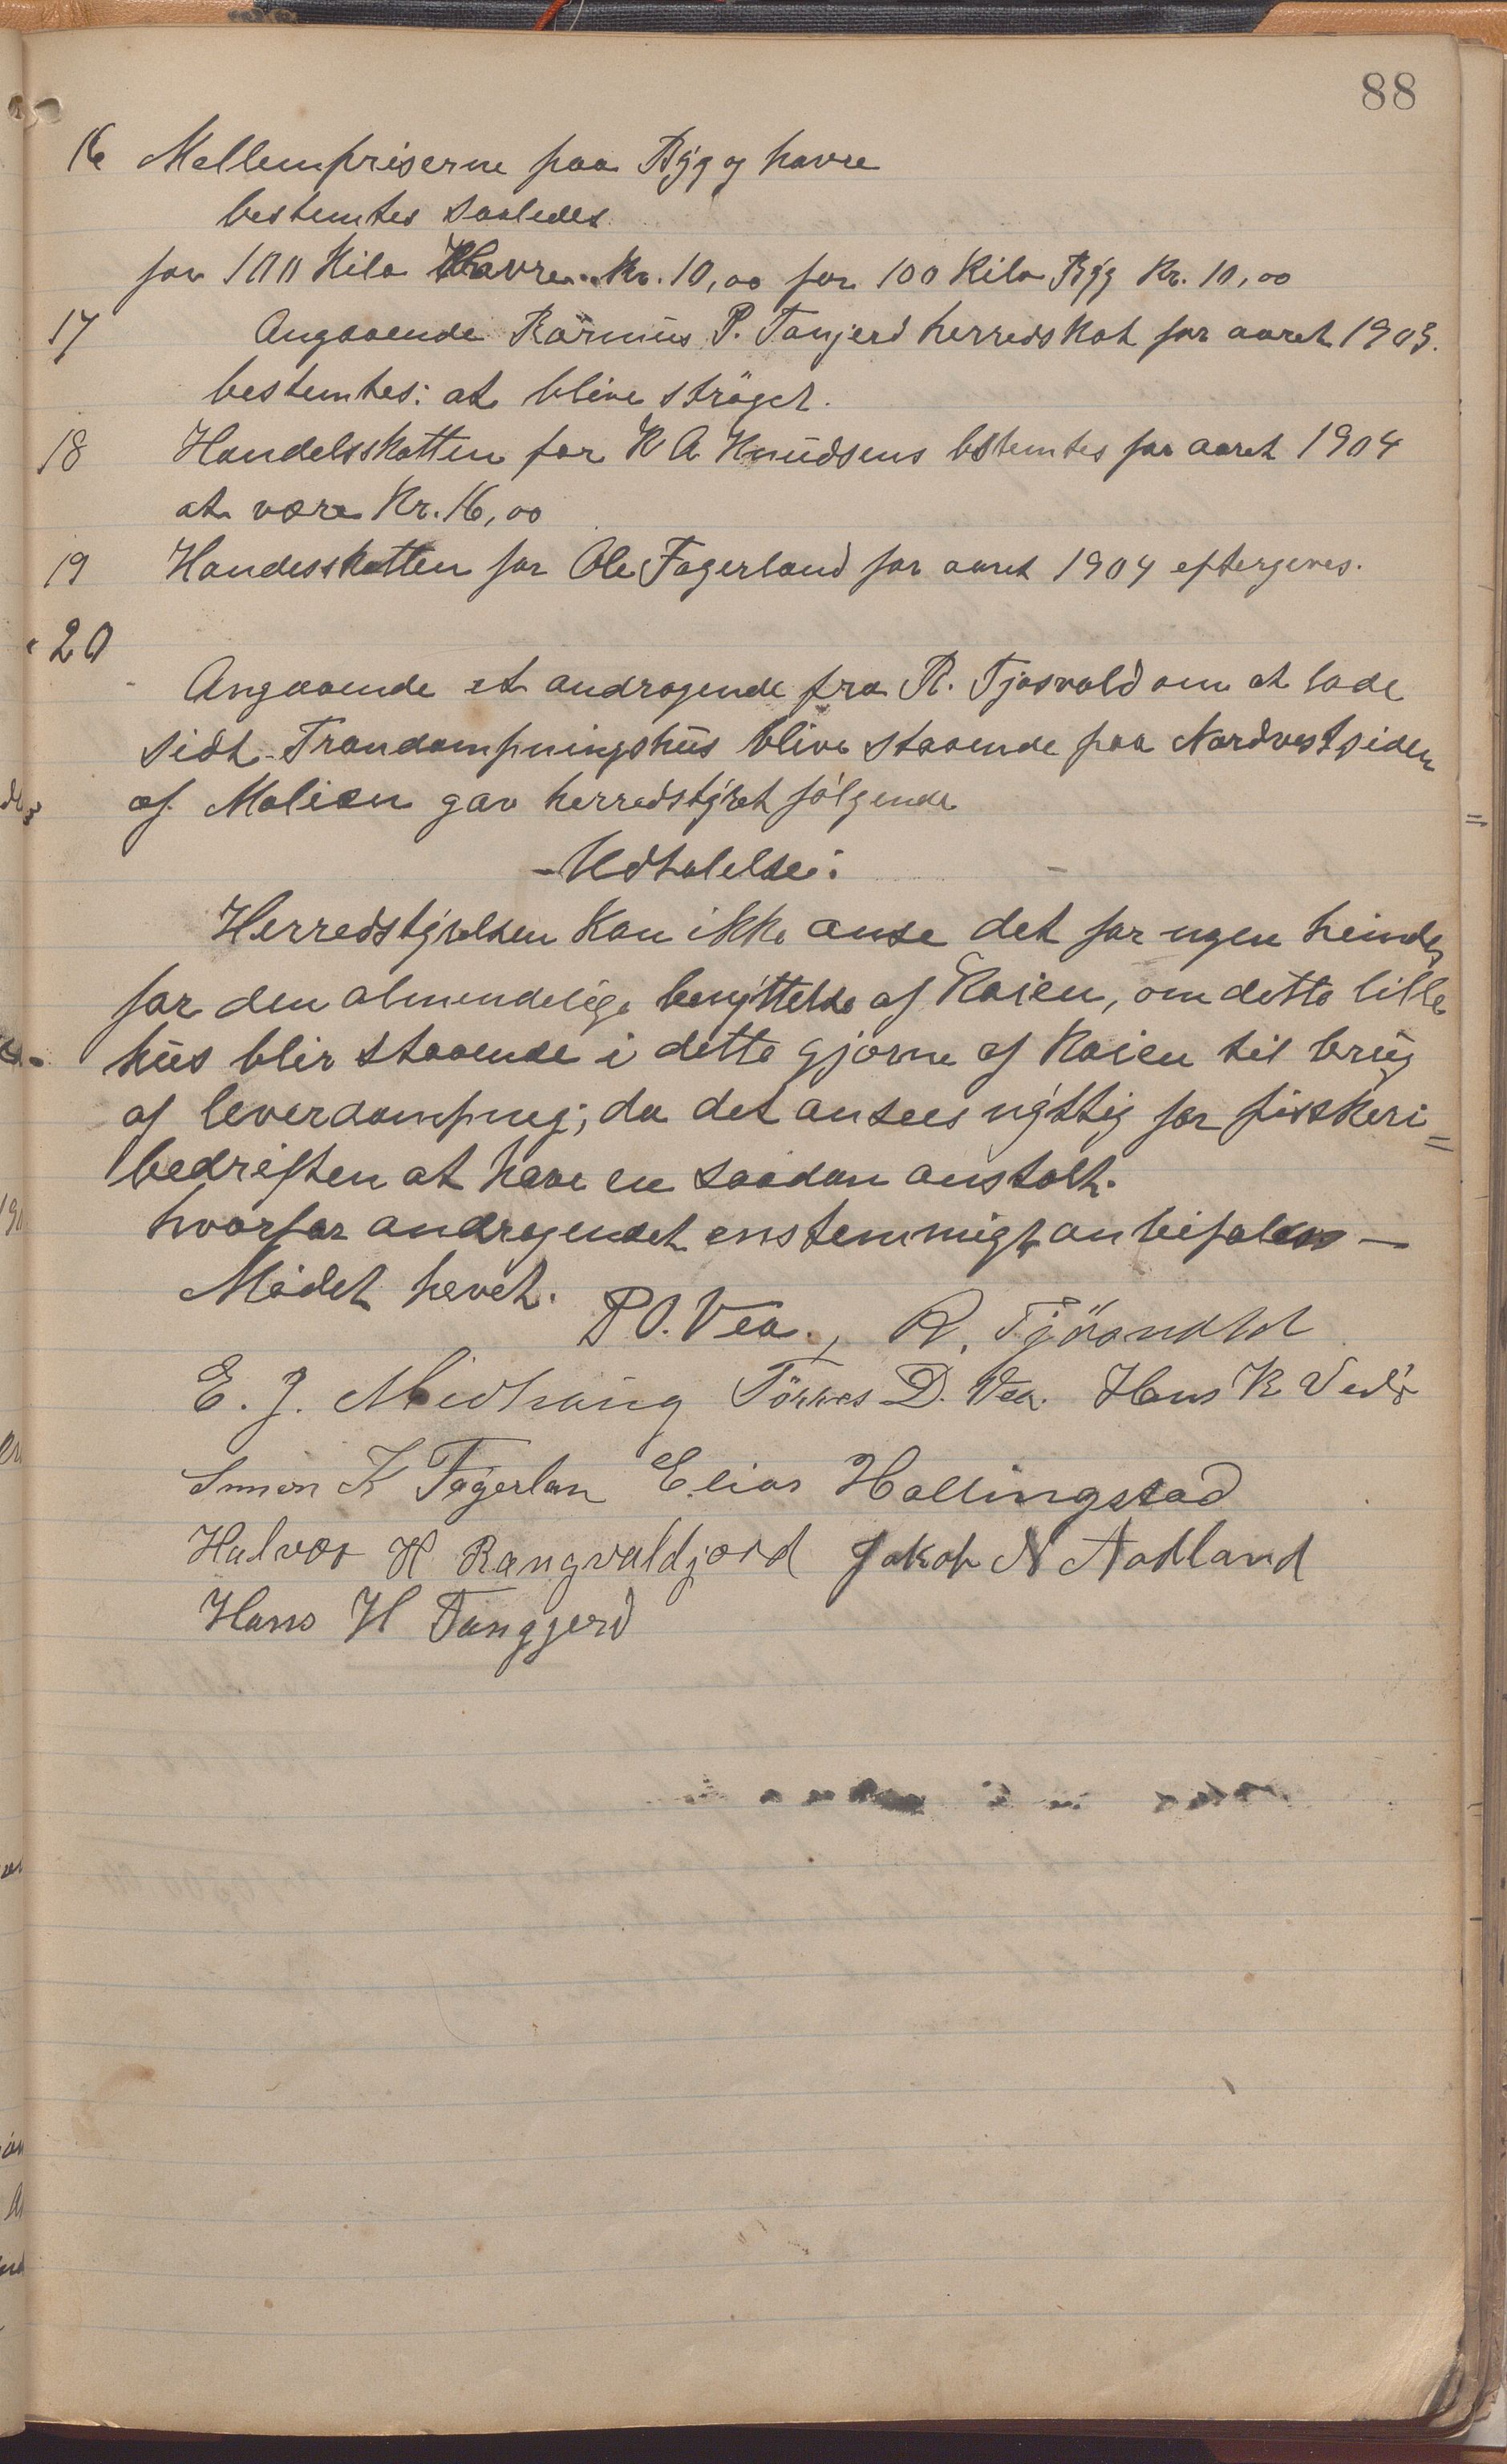 88
16 Mellempriserne paa Byg og havre
bestemtes saaledes
for 100 Kilo Havre.. Kr. 10,00 for 100 Kilo Byg Kr. 10,00
17 Angaaende Rasmus P. Tanjerd herredskat for aaret 1903.
bestemtes: at blive strøget.
18 Handelsskatten for K A Knudsens bstemtes for aaret 1904
at være Kr. 16,00
19 Handesskatten for Ole Fagerland for aaret 1904 eftergives.
20
Angaaende et andragende fra R. Tjøsvold om at lade
sidt Trandampningshus blive staaende paa Nordvestsiden
af Moloen gav herredstyret følgende
Udtalelse:
Herredstyrelsen kan ikke anse det for ngen heinder
for den almendelige benyttelse af Kaien, om dette lille
hus blir staaende i dette hjørne af Kaien til brug
af leverdampnig; da det ansees nyttig for fisskeri=
bedriften at have en saadan anstalt.
hvorfor andragendet enstemmigt anbeifales —
Mødet hevet.
P O. Vea., R. Tjøsvold
E. J. Midhaug Tørres D. Vea. Hans K Vedø
Simon K Fagerlan Elias Hallingstad
Halvor H Rangvaldjord Jakob N Aadland
Hans H Tanggjerd